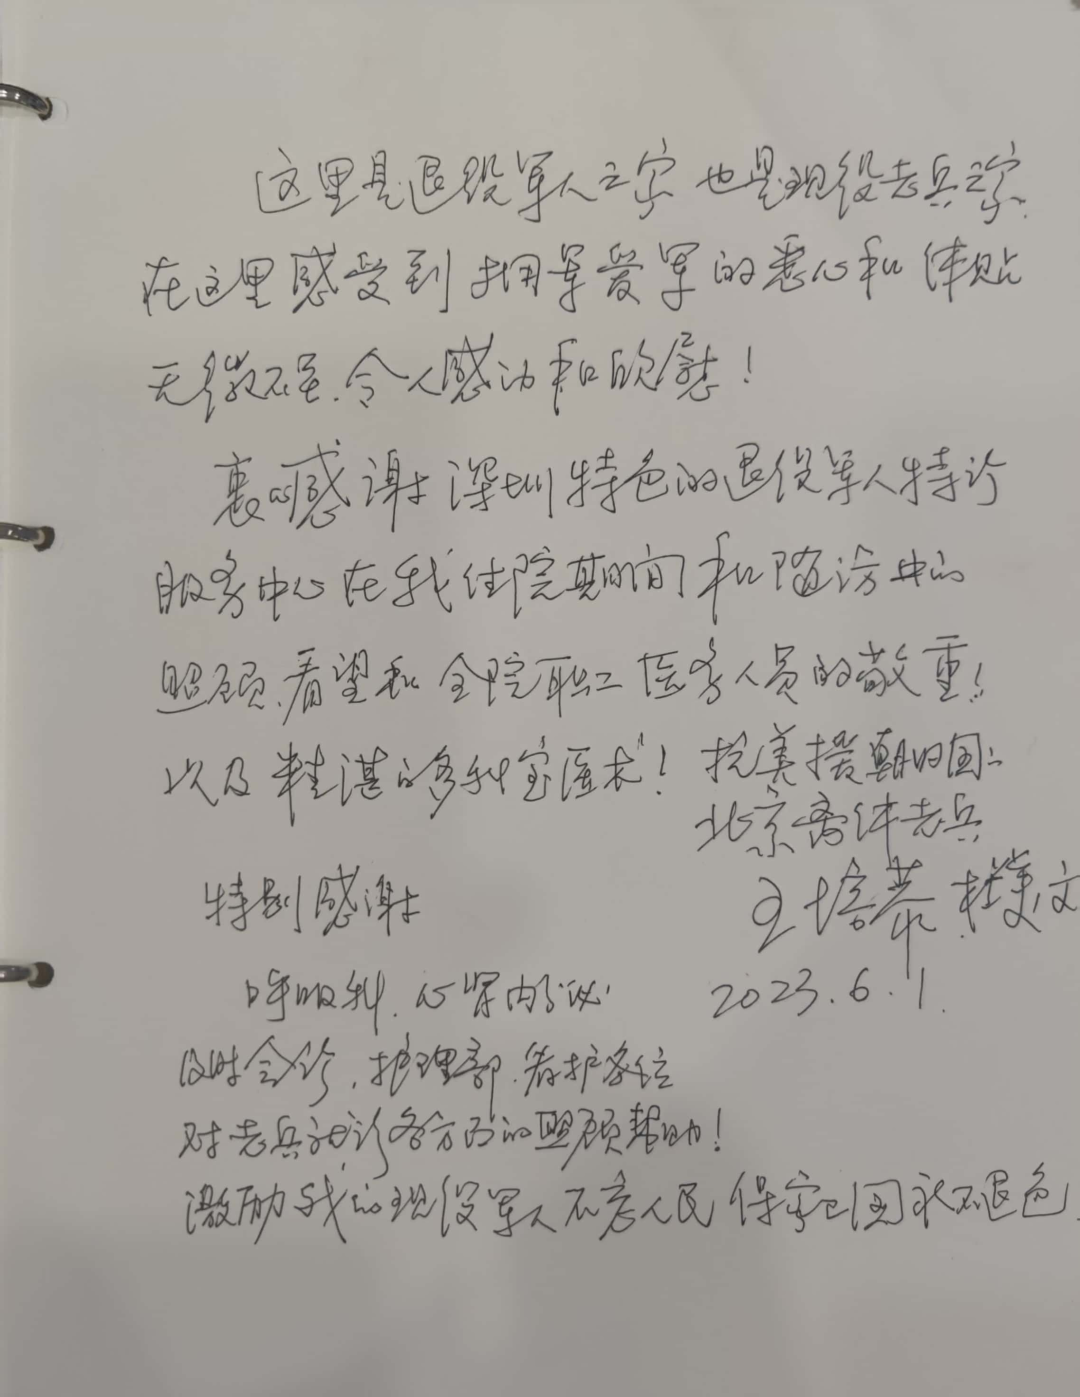 这里是退役军人之家 也是现役老兵之家
在这里感受到拥军爱军的悉心和体贴
无微不至.令人感动和欣慰!
衷心感谢深圳特色的退役军人特诊
服务中心在我住院期间和随访中的
照顾.看望和全院职工医务人员的敬重!
以及精湛的多科室医术!
抗美援朝回国
北京离休老兵
王培 文
2023.6.1.
特别感谢
呼吸科.心肾内分泌
及时会诊.护理部.看护各位
对老兵就诊各方面的照顾帮助!
激励我们现役军人不忘人民 保家卫国永不退色.